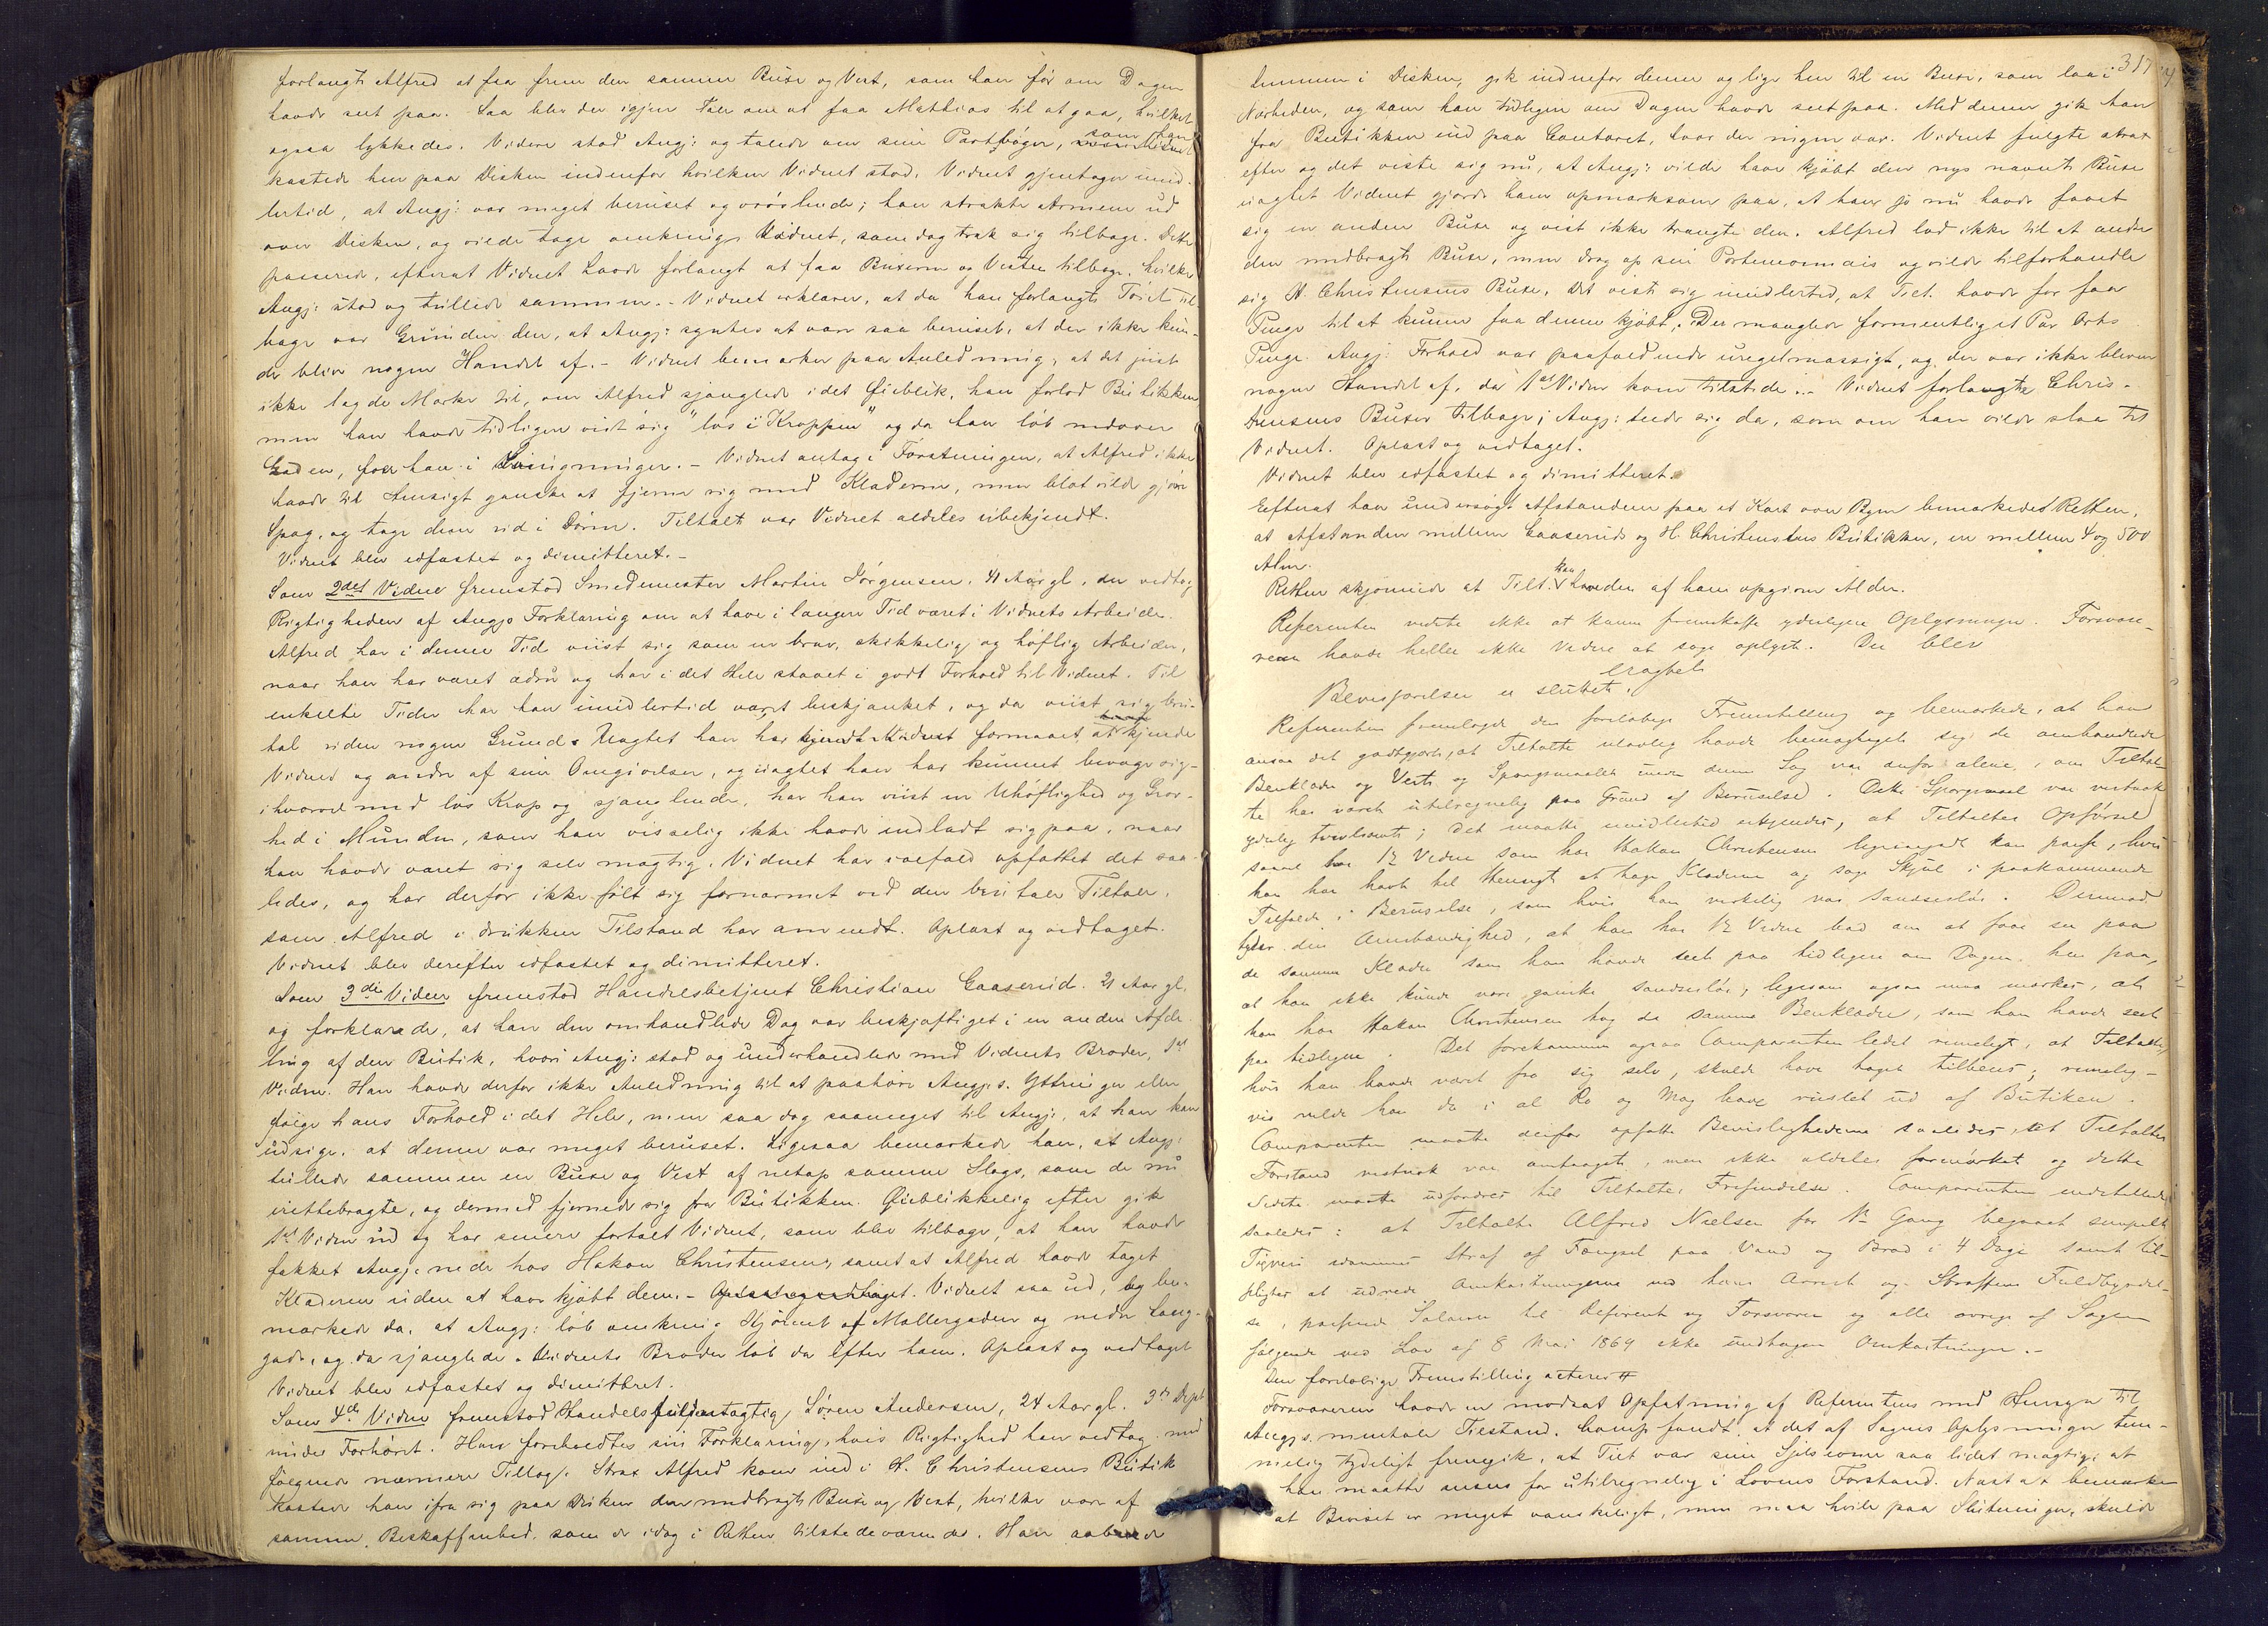 forlangte Alfred at faa frem den samme Buxe og Vest, som han før om Dagen
havde seet paa. Saa blev der igjen Tale om at faa Mathias til at gaa, hvilket
ogsaa lykkedes. Videre stod Angj: og talede om sin Partbøger, som han
kastede hen paa Disken indenfor hvilken Vidnet stod. Vidnet gjentager imid-
lertid, at Angj: var meget beruset og vrøvlende; han strakte Armene ud
over Disken, og vilde tage omkring Vidnet, som dog trak sig tilbage. Dette
passerede, efterat Vidnet havde forlangt at faa Buxerne og Vesten tilbage, hvilke
Angj: stod og tullede sammen.- Vidnet erklærer, at da han forlangte Tøiet til
bage var Grunden den, at Angj: syntes at være saa beruset, at der ikke kun-
de blive nogen Handel af.- Vidnet bemærker paa Anledning, at det just
ikke lagde Mærke til, om Alfred sjanglede i det Øieblik, han forlod Butikken
men han havde tidligere viist sig "løs i Kroppen" og da han løb nedover
Gaden, foer han i Slingninger.- Vidnet antog i Førstningen, at Alfred ikke
havde til Hensigt ganske at fjerne sig med Klæderne, men blot vilde gjøre
Spøg, og tage dem ud i Døren. Tiltalte var Vidnet aldeles ubekjendt.
Vidnet blev edfæstet og dimitteret.-
Som 2det Vidne fremstod Smedemester Martin Jørgensen, 41 Aar gl, der vedtog
Rigtigheden af Angjs Forklaring om at have i længere Tid været i Vidnets Arbeide.
Alfred har i denne Tid viist sig som en brav, skikkelig og høflig Arbeider,
naar han har været ædru og har i det Hele staaet i godt Forhold til Vidnet. Til
enkelte Tider har han imidlertid været beskjænket, og da viist sig bru-
tal uden nogen Grund. Uagtet han har formaaet at kjende
Vidnet og andre af sine Omgivelser, og uagtet han har kunnet bevæge sig
ihvorvel med løs Krop og sjanglende, har han viist en Uhøflighed og Grov-
hed i Munden, som han visselig ikke havde indladt sig paa, naar
han havde været sig selv mægtig. Vidnet har ialfald opfattet det saa-
ledes, og har derfor ikke følt sig fornærmet ved den brutale Tiltale,
som Alfred i drukken Tilstand har anvendt. Oplæst og vedtaget.
Vidnet blev derefter edfæstet og dimitteret.
Som 3die Vidne fremstod Handelsbetjent Christian Gaaserud, 21 Aar gl.
og forklarede, at han den omhandlede Dag var beskjæftiget i en anden Afde-
ling af den Butik, hvori Angj: stod og underhandlede med Vidnets Broder, 1ste
Vidne. Han havde derfor ikke Anledning til at paahøre Angjs. Yttringer eller
følge hans Forhold i det Hele, men saa dog saameget til Angj:, at han kan
udsige, at denne var meget beruset. Ligesaa bemærkede han, at Angj:
tullede sammen en Buxe og Vest af netop samme Slags, som de nu
irettebragte, og dermed fjernede sig fra Butikken. Øieblikkelig efter gik
1ste Vidne ud og har senere fortalt Vidnet, som blev tilbage, at han havde
fakket Angj: nede hos Hakon Christensen, samt at Alfred havde taget
Klæderne uden at have kjøbt dem.- Oplæst og vedtaget. Vidnet saa ud, og be-
mærkede da, at Angj: løb omkring Hjørnet af Møllergaden og nedre Lang-
gade, og da sjanglede. Vidnets Broder løb da efter ham. Oplæst og vedtaget
Vidnet blev edfæstet og dimitteret.
Som 4de Vidne fremstod Handelsfuldmægtig Søren Andersen, 24 Aar gl. 3die Dept
under Forhøret. Ham foreholdtes sin Forklaring, hvis Rigtighed han vedtog med
følgende nærmere Tillæg. Strax Alfred kom ind i H. Christensens Butik
kastede han ifra sig paa Disken den medbragte Buxe og Vest, hvilke vare af
samme Beskaffenhed som de idag i Retten tilstedeværende. Han aabnede
317
Lemmen i Disken, gik indenfor denne og lige hen til en Buxe, som laa i
Nærheden, og som han tidligere om Dagen havde seet paa. Med denne gik han
fra Butikken ind paa Contoret, hvor der ingen var. Vidnet fulgte strax
efter og det viste sig nu, at Angj: vilde have kjøbt den nys nævnte Buxe
uagtet Vidnet gjorde ham opmærksom paa, at han jo nu havde faaet
sig en anden Buxe og vist ikke trængte den. Alfred lod ikke til at ændse
den medbragte Buxe, men drog op sin Portemonnais og vilde tilforhandle
sig H. Christensens Buxe. Det viste sig imidlertid, at Tilt. havde for faa
Penge til at kunne faa denne kjøbt. Der manglede formentlig et Par Orts
Penge. Angj: Forhold var paafaldende uregelmæssigt, og der var ikke bleven
nogen Handel af, da 1ste Vidne kom tilstede.- Vidnet forlangte Chris-
tensens Buxer tilbage; Angj: lod sig da, som om han vilde slaa til
Vidnet. Oplæst og vedtaget.
Vidnet blev edfæstet og dimitteret.
Efterat have undersøgt Afstanden paa et Kart over Byen bemærkedes Retten,
at Afstanden mellem Gaaseruds og H. Christensens Butikker, er mellem 4 og 500
Alen.
Retten skjønnede at Tilt. kan have den af ham opgivne Alder.
Referenten vidste ikke at kunne fremskaffe yderligere Oplysninger. Forsvare-
ren havde heller ikke videre at søge oplyst. Der blev
eragtet:
Bevisførelsen er sluttet.
Referenten fremlagde den foreløbige Fremstilling og bemærkede, at han
ansaa det godtgjort, at Tiltalte ulovlig havde bemægtiget sig de omhandlede
Benklæder og Vest og Spørgsmaalet under denne Sag var derfor alene, om Tiltal-
te har været utilregnelig paa Grund af Beruselse. Dette Spørgsmaal var vistnok
yderlig tvivlsomt; det maatte imidlertid erkjendes, at Tiltaltes Opførsel
saavel hos 1ste Vidne som hos Hakon Christensen ligesaagodt kan passe, hvis
han har havt til Hensigt at tage Klæderne og søge Skjul i paakommende
Tilfælde i Beruselse, som hvis han virkelig var sandsesløs. Derimod
tyder den Omstændighed, at han hos 1ste Vidne bad om at faae se paa
de samme Klæder som han havde seet paa tidligere om Dagen, hen paa,
at han ikke kunde være ganske sandsesløs, ligesom ogsaa maa mærkes, at
han hos Hakon Christensen tog de samme Benklæder, som han havde seet
paa tidligere. Det forekommer ogsaa Comparenten lidet rimeligt, at Tiltalte,
hvis han havde været fra sig selv, skulde have taget tilbens; rimelig-
vis vilde han da i al Ro og Mag have ruslet ud af Butiken.
Comparenten maatte derfor opfatte Bevislighederne saaledes, at Tiltaltes
Forstand vistnok var omtaaget, men ikke aldeles formørket og dette
Sidste maatte udfordres til Tiltaltes Frifindelse. Comparenten indstillede
saaledes: at Tiltalte Alfred Nielsen for 1ste Gang begaaet simpelt
Tyveri idømmes Straf af Fængsel paa Vand og Brød i 4 Dage samt til-
pligtes at udrede Omkostningerne ved hans Arrest og Straffens Fuldbyrdel-
se, passende Salærer til Referent og Forsvarer og alle øvrige af Sagen
følgende ved Lov af 8 Mai 1869 ikke undtagne Omkostninger.-
Den foreløbige Fremstilling acteres #
Forsvareren havde en modsat Opfatning af Referentens med Hensyn til
Angjs. mentale Tilstand. Comp fandt, at det af Sagens Oplysninger tem-
melig tydeligt fremgik, at Tilt var sine Sjelsevner saa lidet mægtig, at
han maatte ansees for utilregnelig i Lovens Forstand. Næst at bemærke
at Beviset er meget vanskeligt, men maa hvile paa Slutninger, skulde